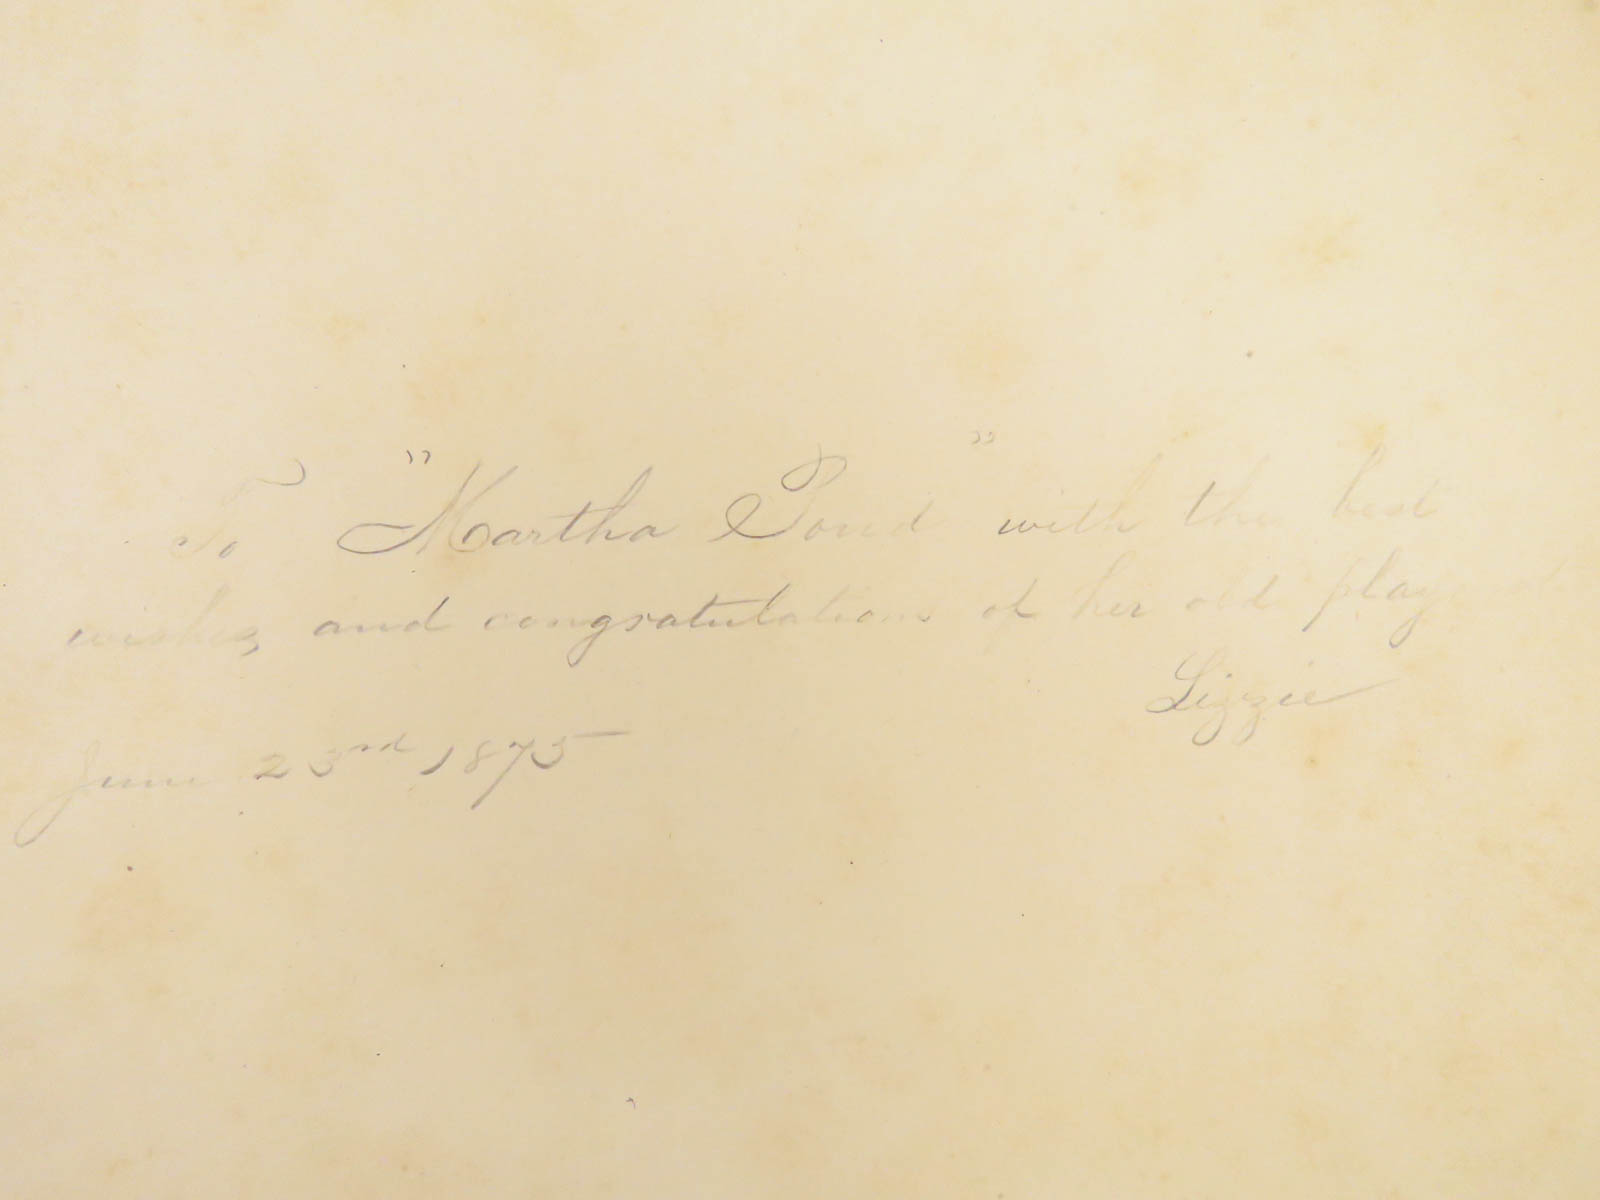 To "Martha Pond" with the best
wishes, and congratulations of her old playmate
Lizzie
June 23rd 1875